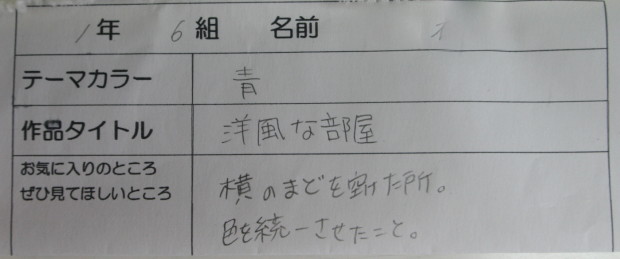 1年 6組 名前
テーマカラー 青
作品タイトル 洋風な部屋
お気に入りのところ
ぜひ見てほしいところ
横のまどを空けた所。
色を統一させたこと。